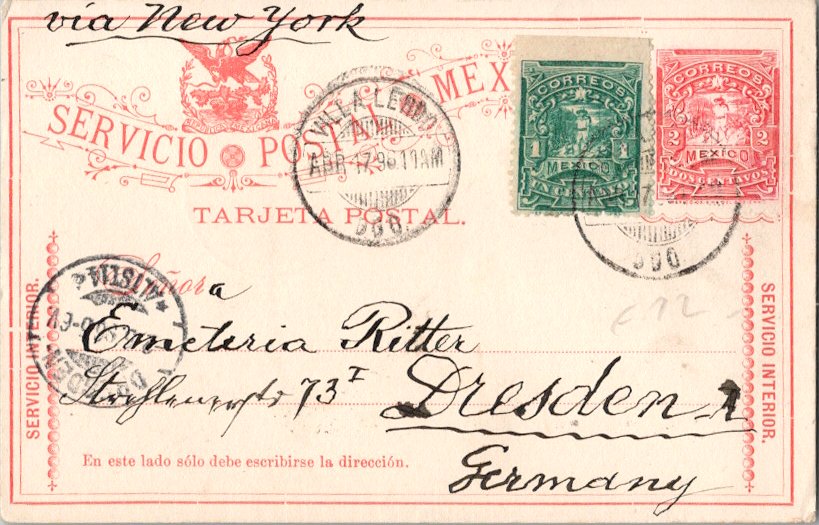 via New York
SERVICIO POSTAL MEX
CORREOS
1 1
MEXICO
UN CENTAVO
CORREOS
2 2
MEXICO
DOS CENTAVOS
VILLA LERDO
ABR 17 96 11 AM
DGO.
TARJETA POSTAL.
DGO
Señora
Emeteria Ritter
73 I
Dresden A
Germany
SERVICIO INTERIOR.
SERVICIO INTERIOR.
ALTST. 14
DRESDEN
En este lado sólo debe escribirse la dirección.